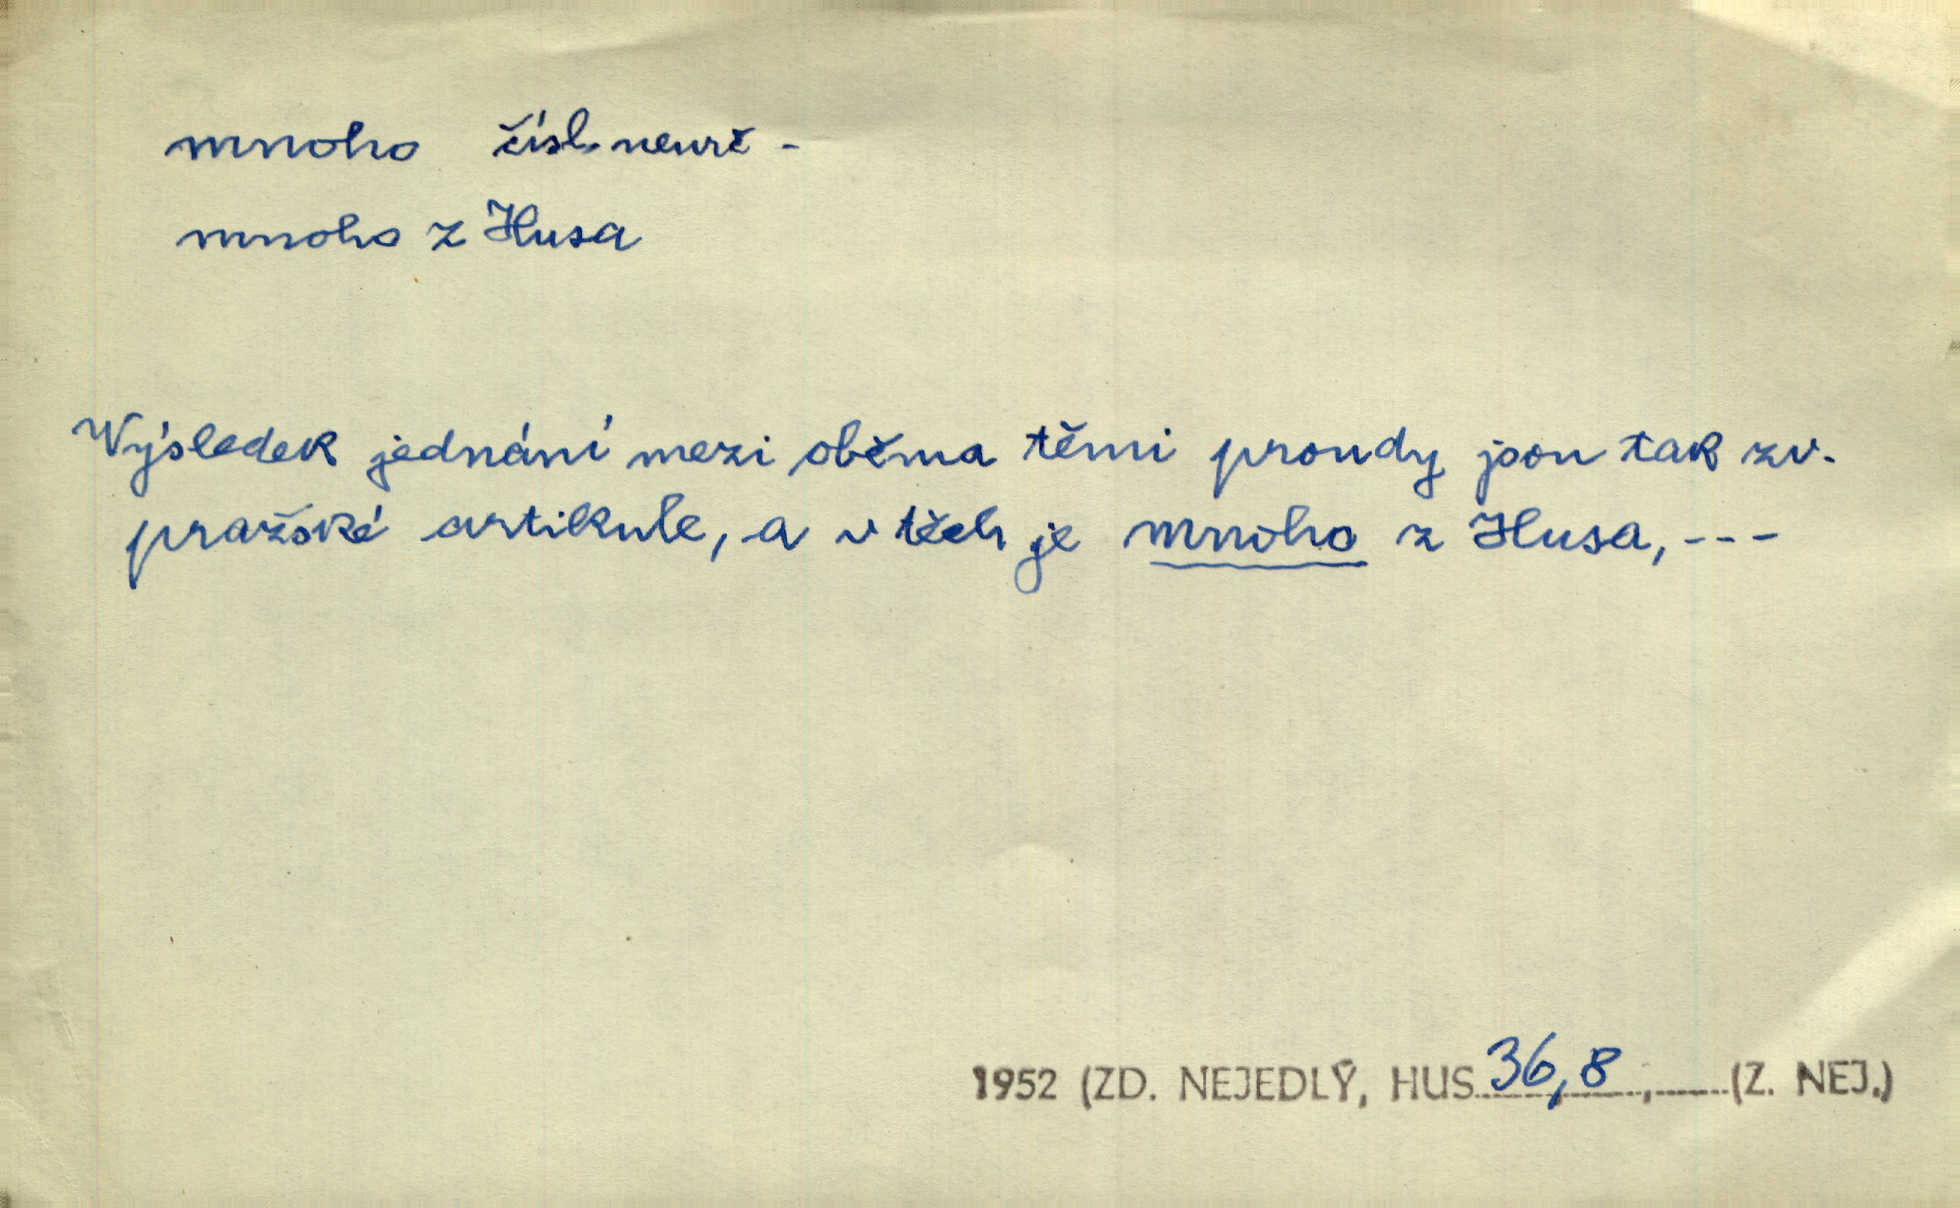 mnoho čísl. neurč -
mnoho z Husa
Výsledek jednání mezi oběma těmi proudy jsou tak zv.
pražské artikule, a v těch je mnoho z Husa, ---
1952 (ZD. NEJEDLÝ, HUS 36,8 , (Z. NEJ.)